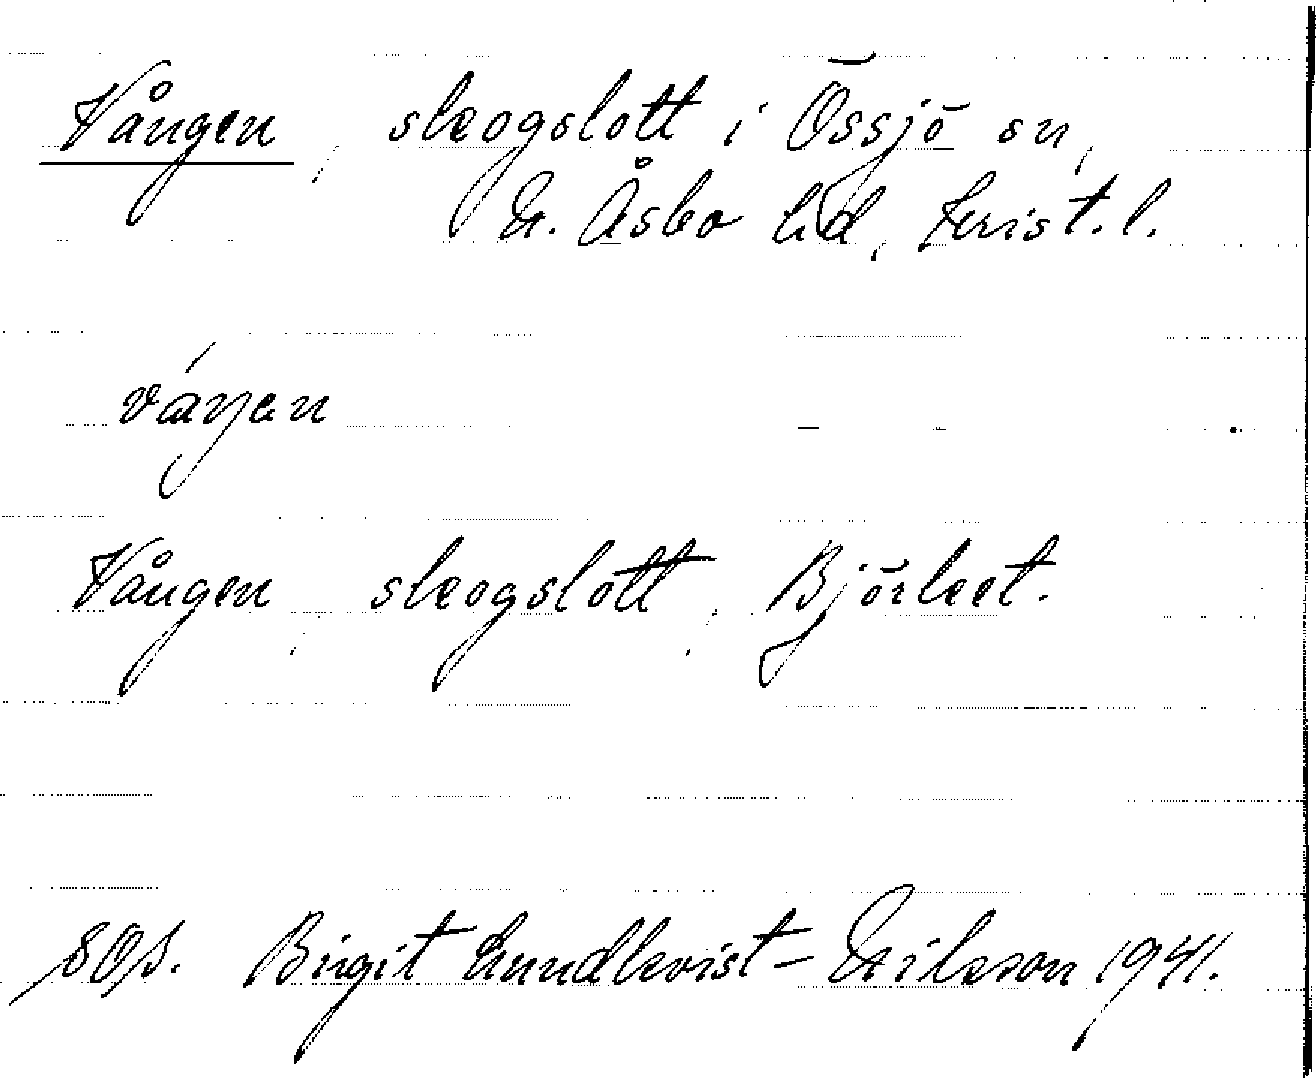 Vången, skogslott i Össjö sn,
N. Åsbo hd, Krist. l.
váŋen
Vången, skogslott, Björket.
Birgit Lundkvist-Nilsson 1941.